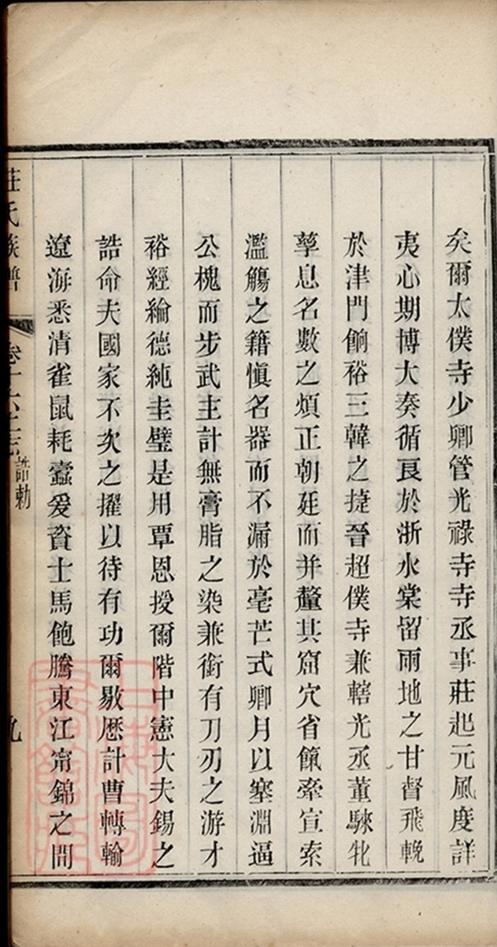 矣爾太僕寺少卿管光祿寺寺丞事莊起元風度詳
夷心期博大奏循良於浙水棠留雨地之甘督飛輓
於津門餉裕三韓之捷晉超僕寺兼轄光丞董騋牝
孳息名數之煩正朝廷而并釐其窟穴省餼牽宣索
濫觴之籍愼名器而不漏於亳芒式卿月以塞淵逼
公槐而步武主計無膏脂之染兼銜有刀刃之游才
裕經綸德純圭璧是用覃恩授爾階中憲大夫錫之
誥命夫國家不次之擢以待有功爾敭歴計曹轉輸
遼海悉清雀鼠耗蠹爰資士馬飽騰東江甯錦之間
莊氏族譜
卷十六之志 誥勅
九